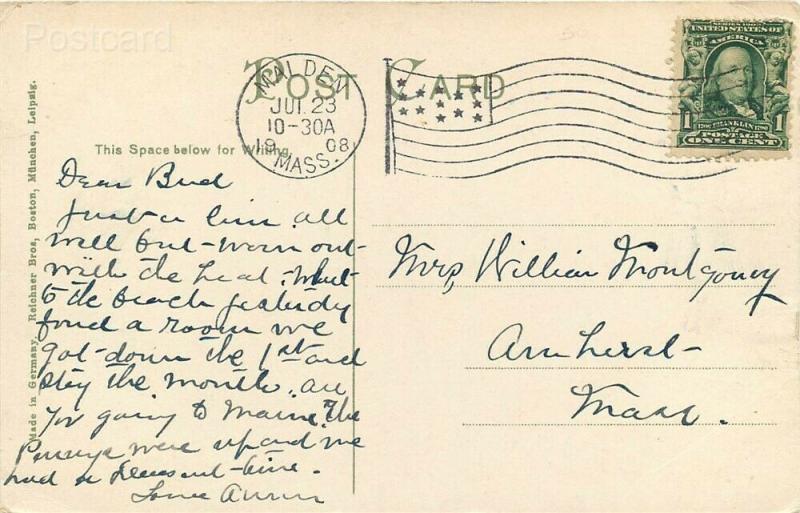 Postcard
POST CARD
MALDEN
JUL 23
10-30A
1908
MASS.
SERIES 1902
UNITED STATES OF
AMERICA
1 1
1706 FRANKLIN 1790
POSTAGE
ONE CENT
This Space below for Writing
Made in Germany. Reichner Bros, Boston, München, Leipzig.
Dear Bud
Just a line all
well but worn out
with the heat. Went
to the beach yesterdy
fond a room we
got down the 1st and
stay the month. are
yo going to Maine. The
were up and we
had a pleasant time.
Love
Mrs, William Montgomey
Amherst
Mass.